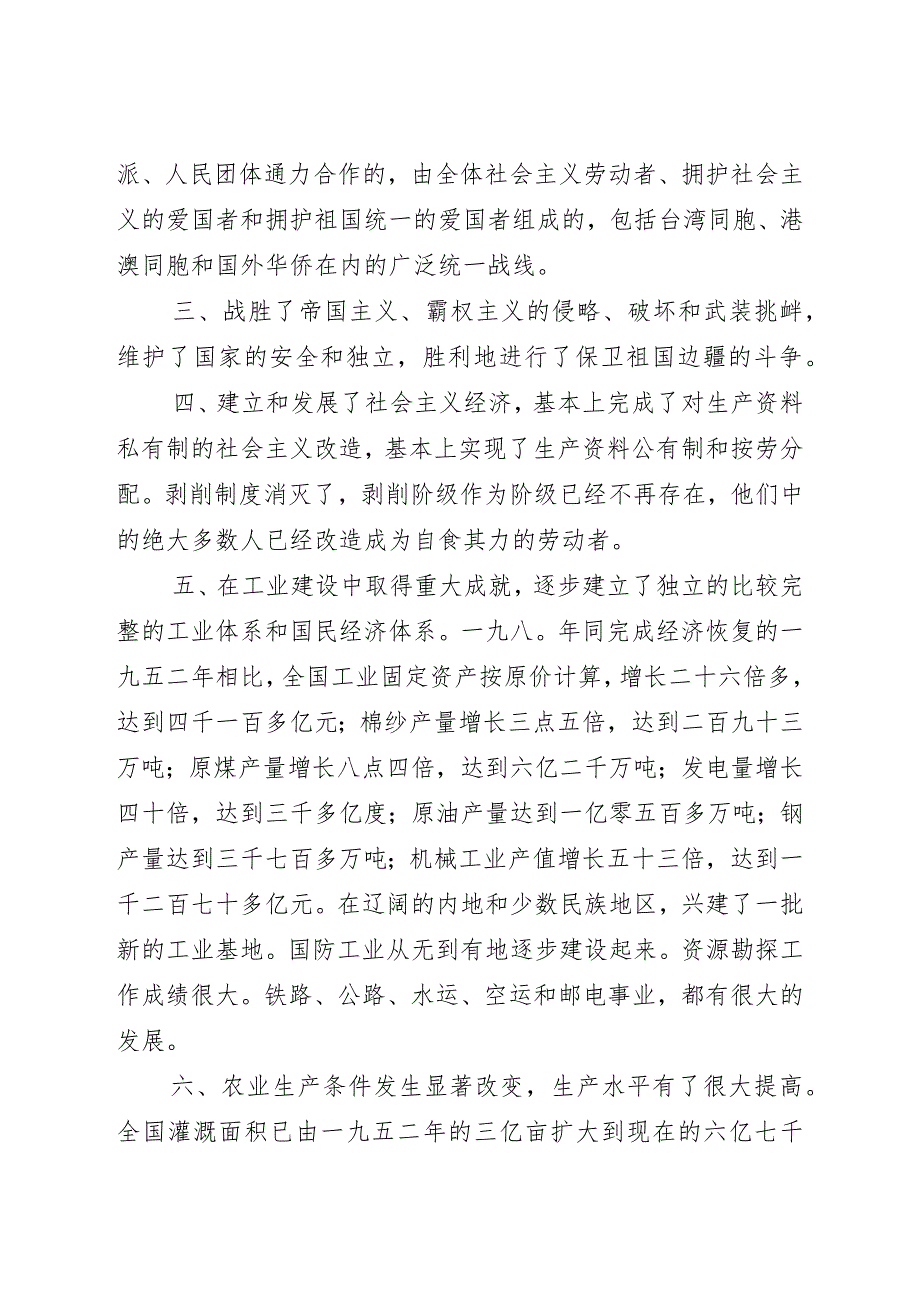 派、人民团体通力合作的，由全体社会主义劳动者、拥护社会主
义的爱国者和拥护祖国统一的爱国者组成的，包括台湾同胞、港
澳同胞和国外华侨在内的广泛统一战线。
三、战胜了帝国主义、霸权主义的侵略、破坏和武装挑衅，
维护了国家的安全和独立，胜利地进行了保卫祖国边疆的斗争。
四、建立和发展了社会主义经济，基本上完成了对生产资料
私有制的社会主义改造，基本上实现了生产资料公有制和按劳分
配。剥削制度消灭了，剥削阶级作为阶级已经不再存在，他们中
的绝大多数人已经改造成为自食其力的劳动者。
五、在工业建设中取得重大成就，逐步建立了独立的比较完
整的工业体系和国民经济体系。一九八。年同完成经济恢复的一
九五二年相比，全国工业固定资产按原价计算，增长二十六倍多，
达到四千一百多亿元；棉纱产量增长三点五倍，达到二百九十三
万吨；原煤产量增长八点四倍，达到六亿二千万吨；发电量增长
四十倍，达到三千多亿度；原油产量达到一亿零五百多万吨；钢
产量达到三千七百多万吨；机械工业产值增长五十三倍，达到一
千二百七十多亿元。在辽阔的内地和少数民族地区，兴建了一批
新的工业基地。国防工业从无到有地逐步建设起来。资源勘探工
作成绩很大。铁路、公路、水运、空运和邮电事业，都有很大的
发展。
六、农业生产条件发生显著改变，生产水平有了很大提高。
全国灌溉面积已由一九五二年的三亿亩扩大到现在的六亿七千